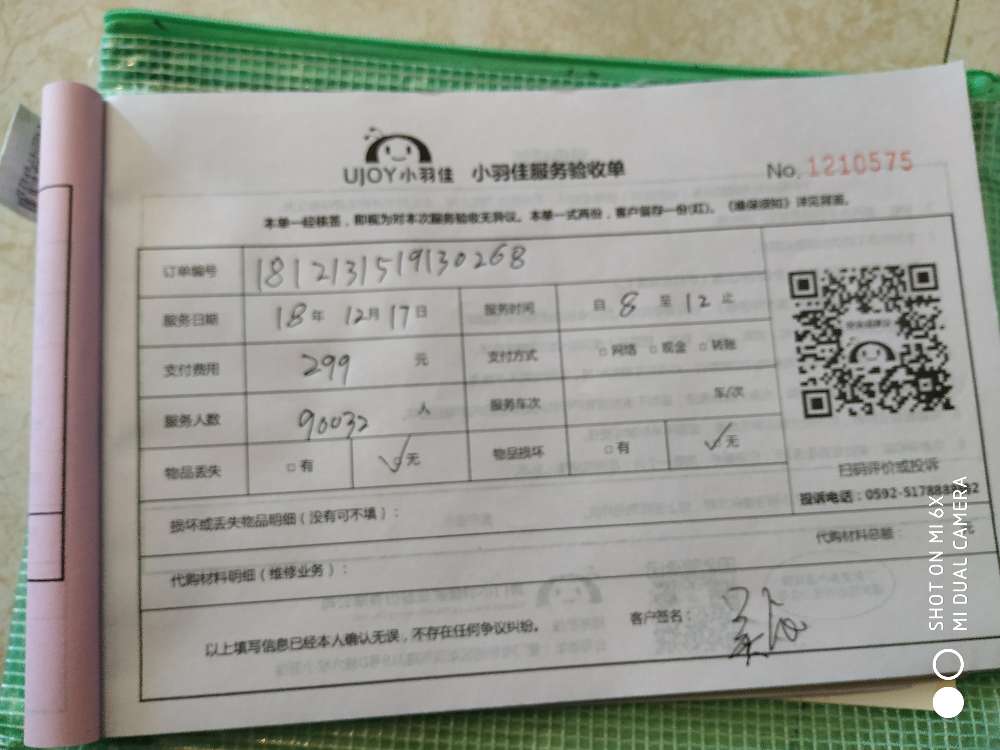 UJOY小羽佳 小羽佳服务验收单 No. 1210575
本单一经核签，即视为对本次服务验收无异议。本单一式两份，客户留存一份(红)。《维保须知》详见背面。
订单编号 1812131519130268
服务日期 18年 12月 17日 服务时间 自 8 至 12 止
支付费用 299 元 支付方式 □网络 □现金 □转账
服务人数 90032 人 服务车次 车/次
物品丢失 □有 ✓□无 物品损坏 □有 ✓□无
扫码评价或投诉
投诉电话：0592-5178888
损坏或丢失物品明细（没有可不填）：
代购材料明细（维修业务）： 代购材料总额： 元
以上填写信息已经本人确认无误，不存在任何争议纠纷。 客户签名：
SHOT ON MI 6X
MI DUAL CAMERA